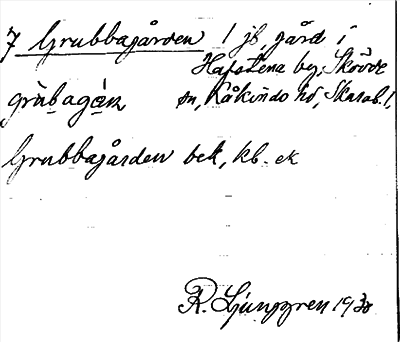 7 Grubbagården 1 jb, gård i
Hafstena by, Skövde
grùbagán sn, Kåkinds hd, Skarab. l,
Grubbagården bek, kb. ek
R. Ljunggren 1930